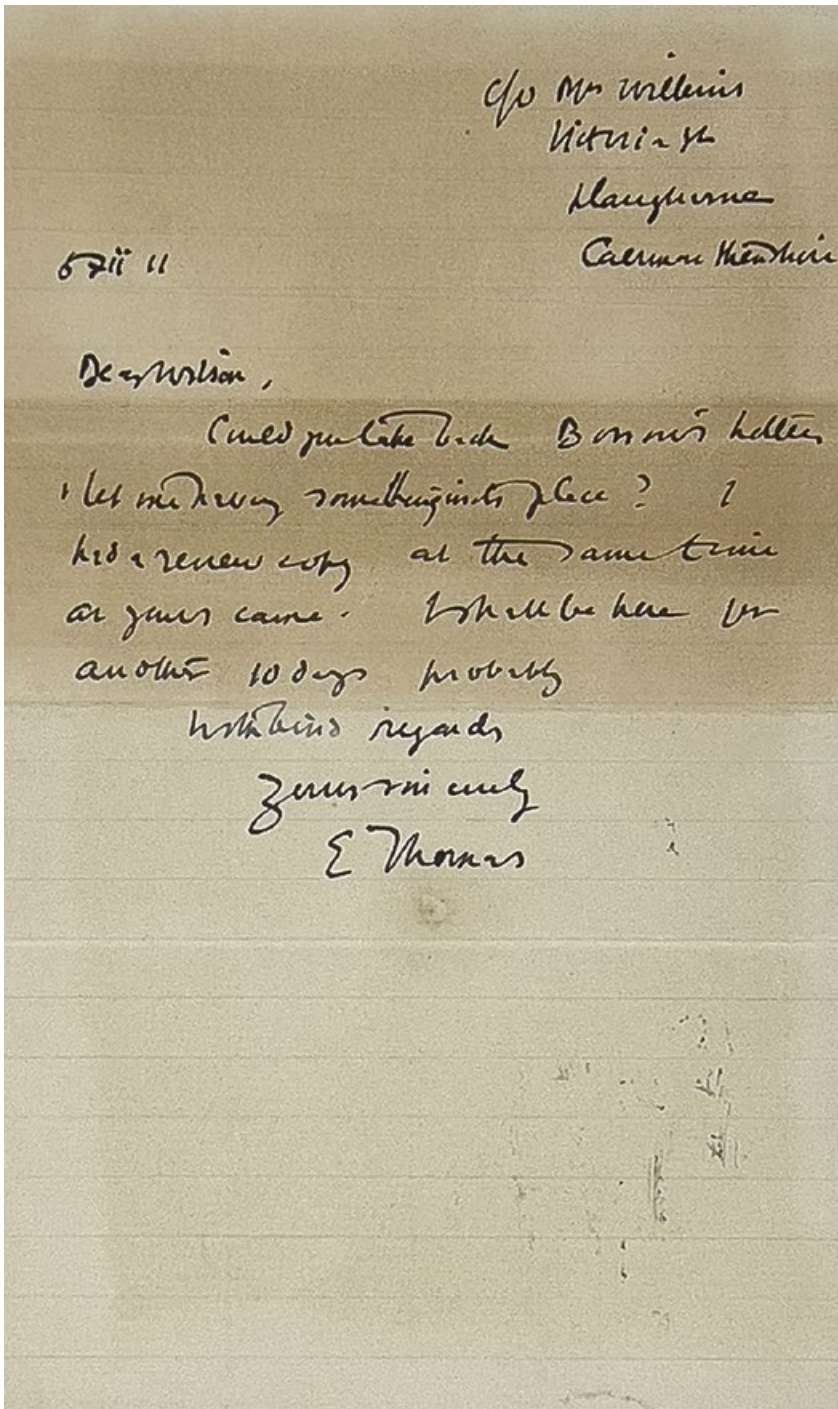 c/o Mrs Wilkins
Victoria St
Llaugharne
Caermarthenshire
11
Dear Wilson,
Could you take back Borrow's Letters
& let me have something in its place? I
had a review copy at the same time
as yours came. I shall be here for
another 10 days probably
With kind regards
Yours sincerely
E Thomas